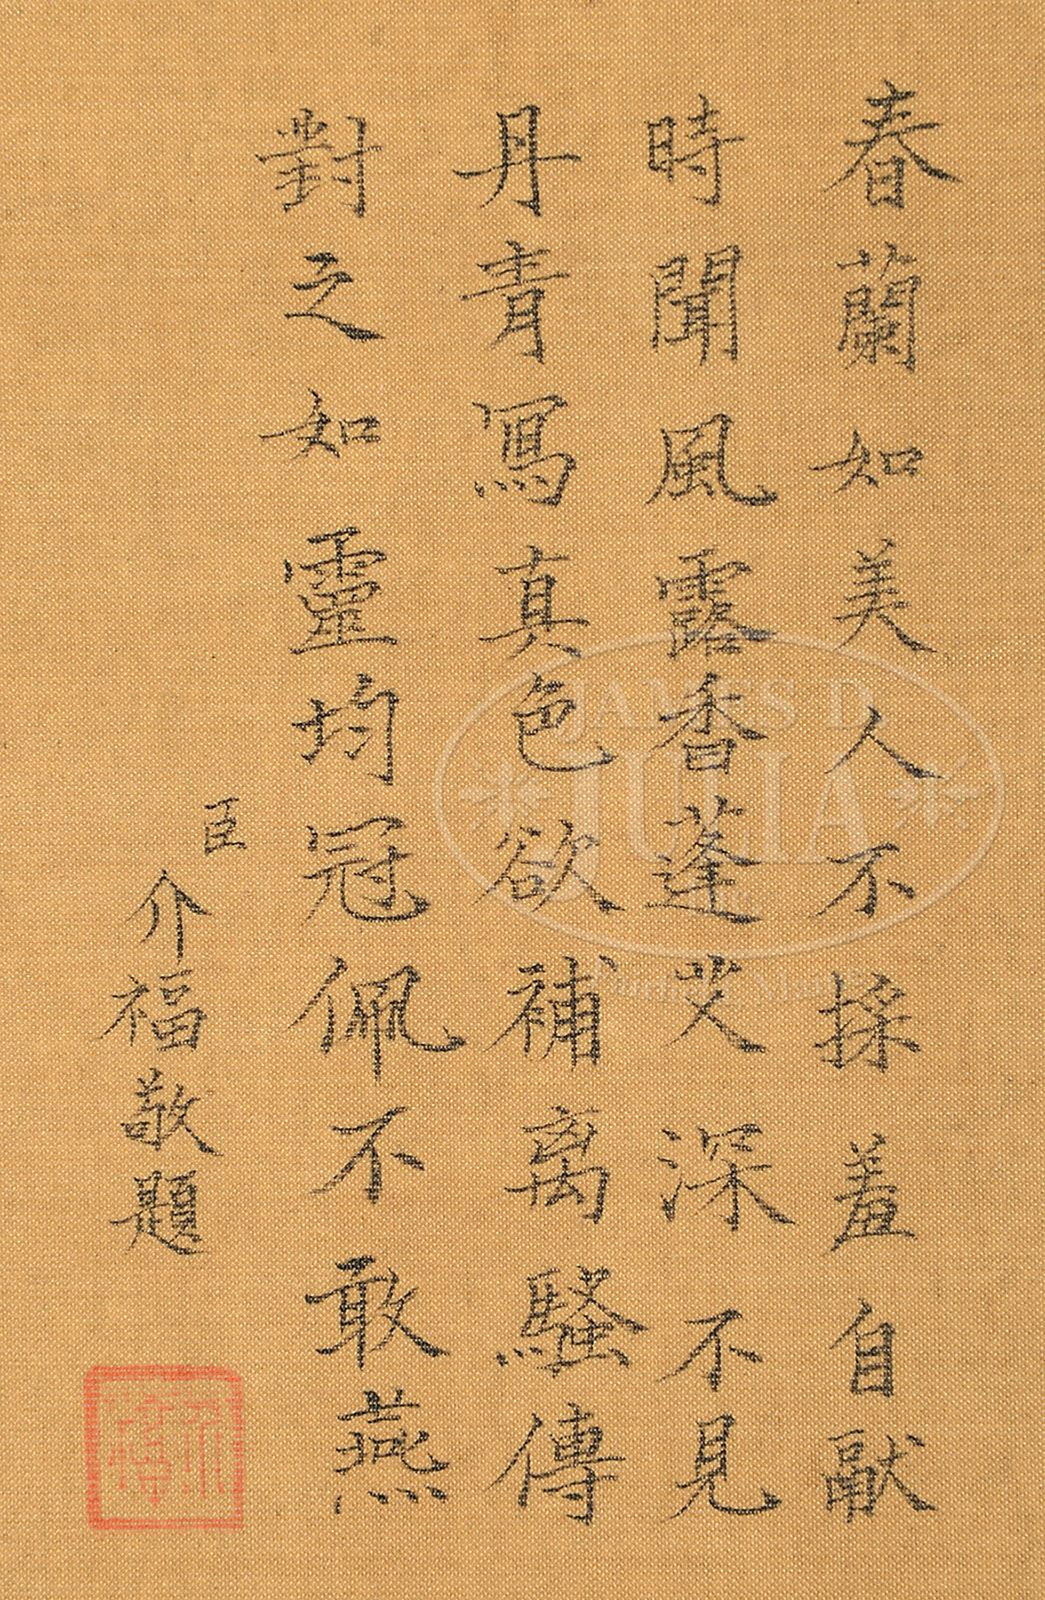 春蘭如美人不採羞自獻
時聞風露香蓬艾深不見
丹青寫真色欲補離騷傳
對之如靈均冠佩不敢燕
臣
介福敬題
JAMES D.
JULIA